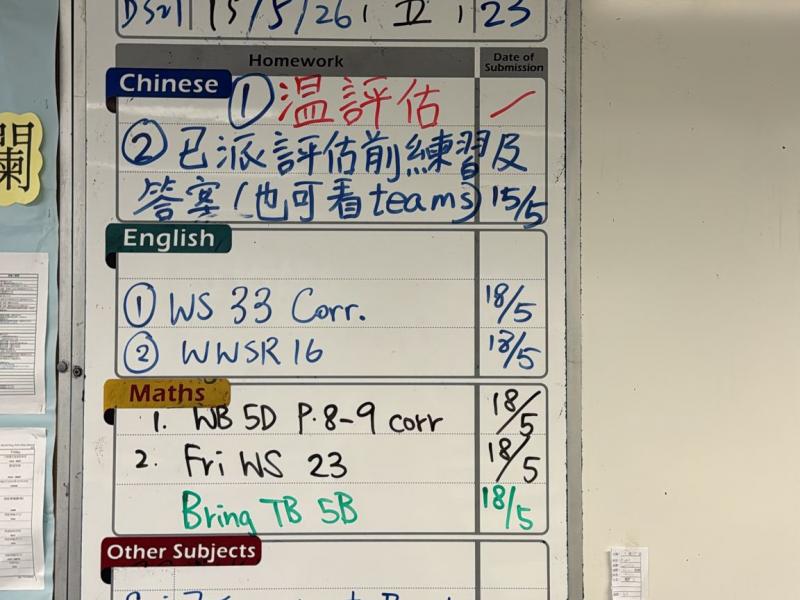 15/5/26, 五, 23
Homework Date of Submission
Chinese ① 温評估
② 已派評估前練習及
答案(也可看teams) 15/5
English
① WS 33 Corr. 18/5
② WWSR 16 18/5
Maths
1. WB 5D P.8-9 corr 18/5
2. Fri WS 23 18/5
Bring TB 5B 18/5
Other Subjects